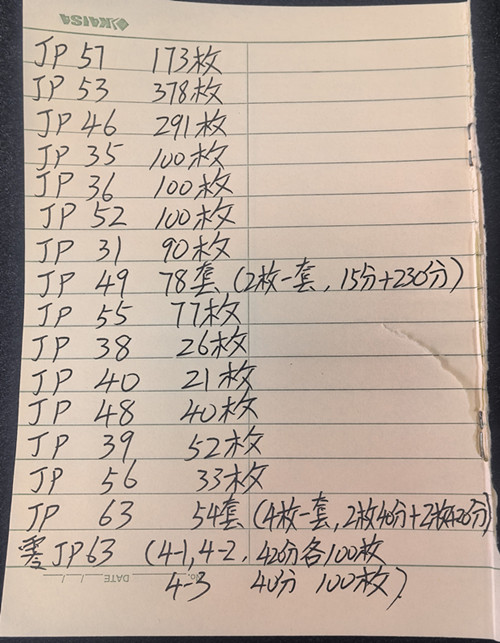 KAISA
JP 57 173枚
JP 53 378枚
JP 46 291枚
JP 35 100枚
JP 36 100枚
JP 52 100枚
JP 31 90枚
JP 49 78套 (2枚一套, 15分+230分)
JP 55 77枚
JP 38 26枚
JP 40 21枚
JP 48 40枚
JP 39 52枚
JP 56 33枚
JP 63 54套 (4枚一套, 2枚40分+2枚420分)
零JP63 (4-1, 4-2, 420分各100枚
4-3 40分 100枚)
No. DATE / /